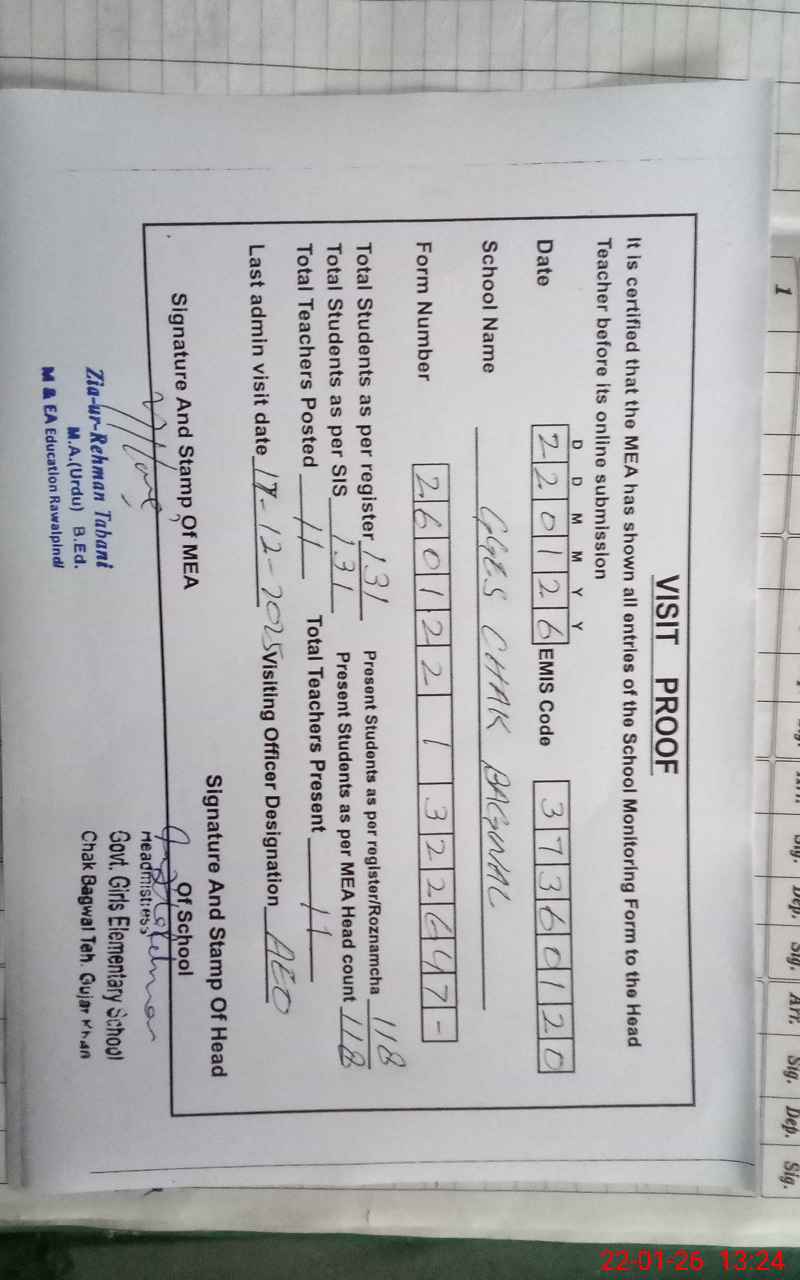 VISIT PROOF
It is certified that the MEA has shown all entries of the School Monitoring Form to the Head
Teacher before its online submission
D D M M Y Y
Date 220126 EMIS Code 37360120
School Name GGES CHAK BAGWAL
Form Number 260122 1 322647-
Total Students as per register 131 Present Students as per register/Roznamcha 118
Total Students as per SIS 131 Present Students as per MEA Head count 118
Total Teachers Posted 11 Total Teachers Present 11
Last admin visit date 17-12-2025 Visiting Officer Designation AEO
Signature And Stamp Of MEA
Signature And Stamp Of Head
Of School
Zia-ur-Rehman Tabani
M.A.(Urdu) B.Ed.
M & EA Education Rawalpindi
Headmistress
Govt. Girls Elementary School
Chak Bagwal Teh. Gujar Khan
1
Sig. Dep. Sig. Arr. Sig. Dep. Sig.
22-01-26 13:24